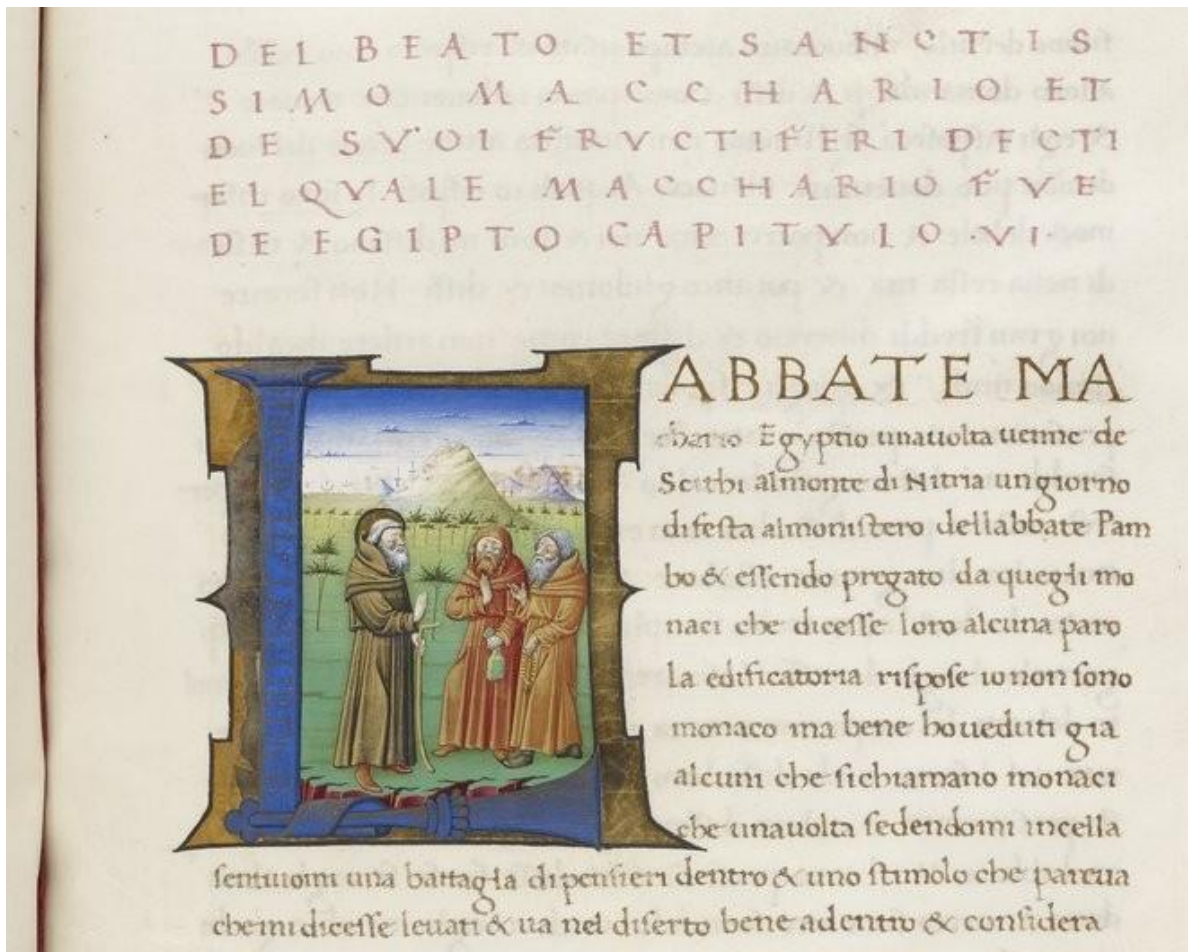 DEL BEATO ET SANCTIS
SIMO MACCHARIO ET
DE SVOI FRVCTIFERI DECTI
EL QVALE MACCHARIO FVE
DE EGIPTO CAPITVLO .VI.
LABBATE MA
chario Egyptio unauolta uenne de
Scithi almonte di Nitria un giorno
difesta almonistero dellabbate Pam
bo & essendo pregato da quegli mo
naci che dicesse loro alcuna paro
la edificatoria rispose io non sono
monaco ma bene ho ueduti gia
alcuni che sichiamano monaci
che unauolta sedendomi incella
sentiuomi una battaglia dipensieri dentro & uno stimolo che pareua
chemi dicesse leuati & ua nel diserto bene adentro & considera